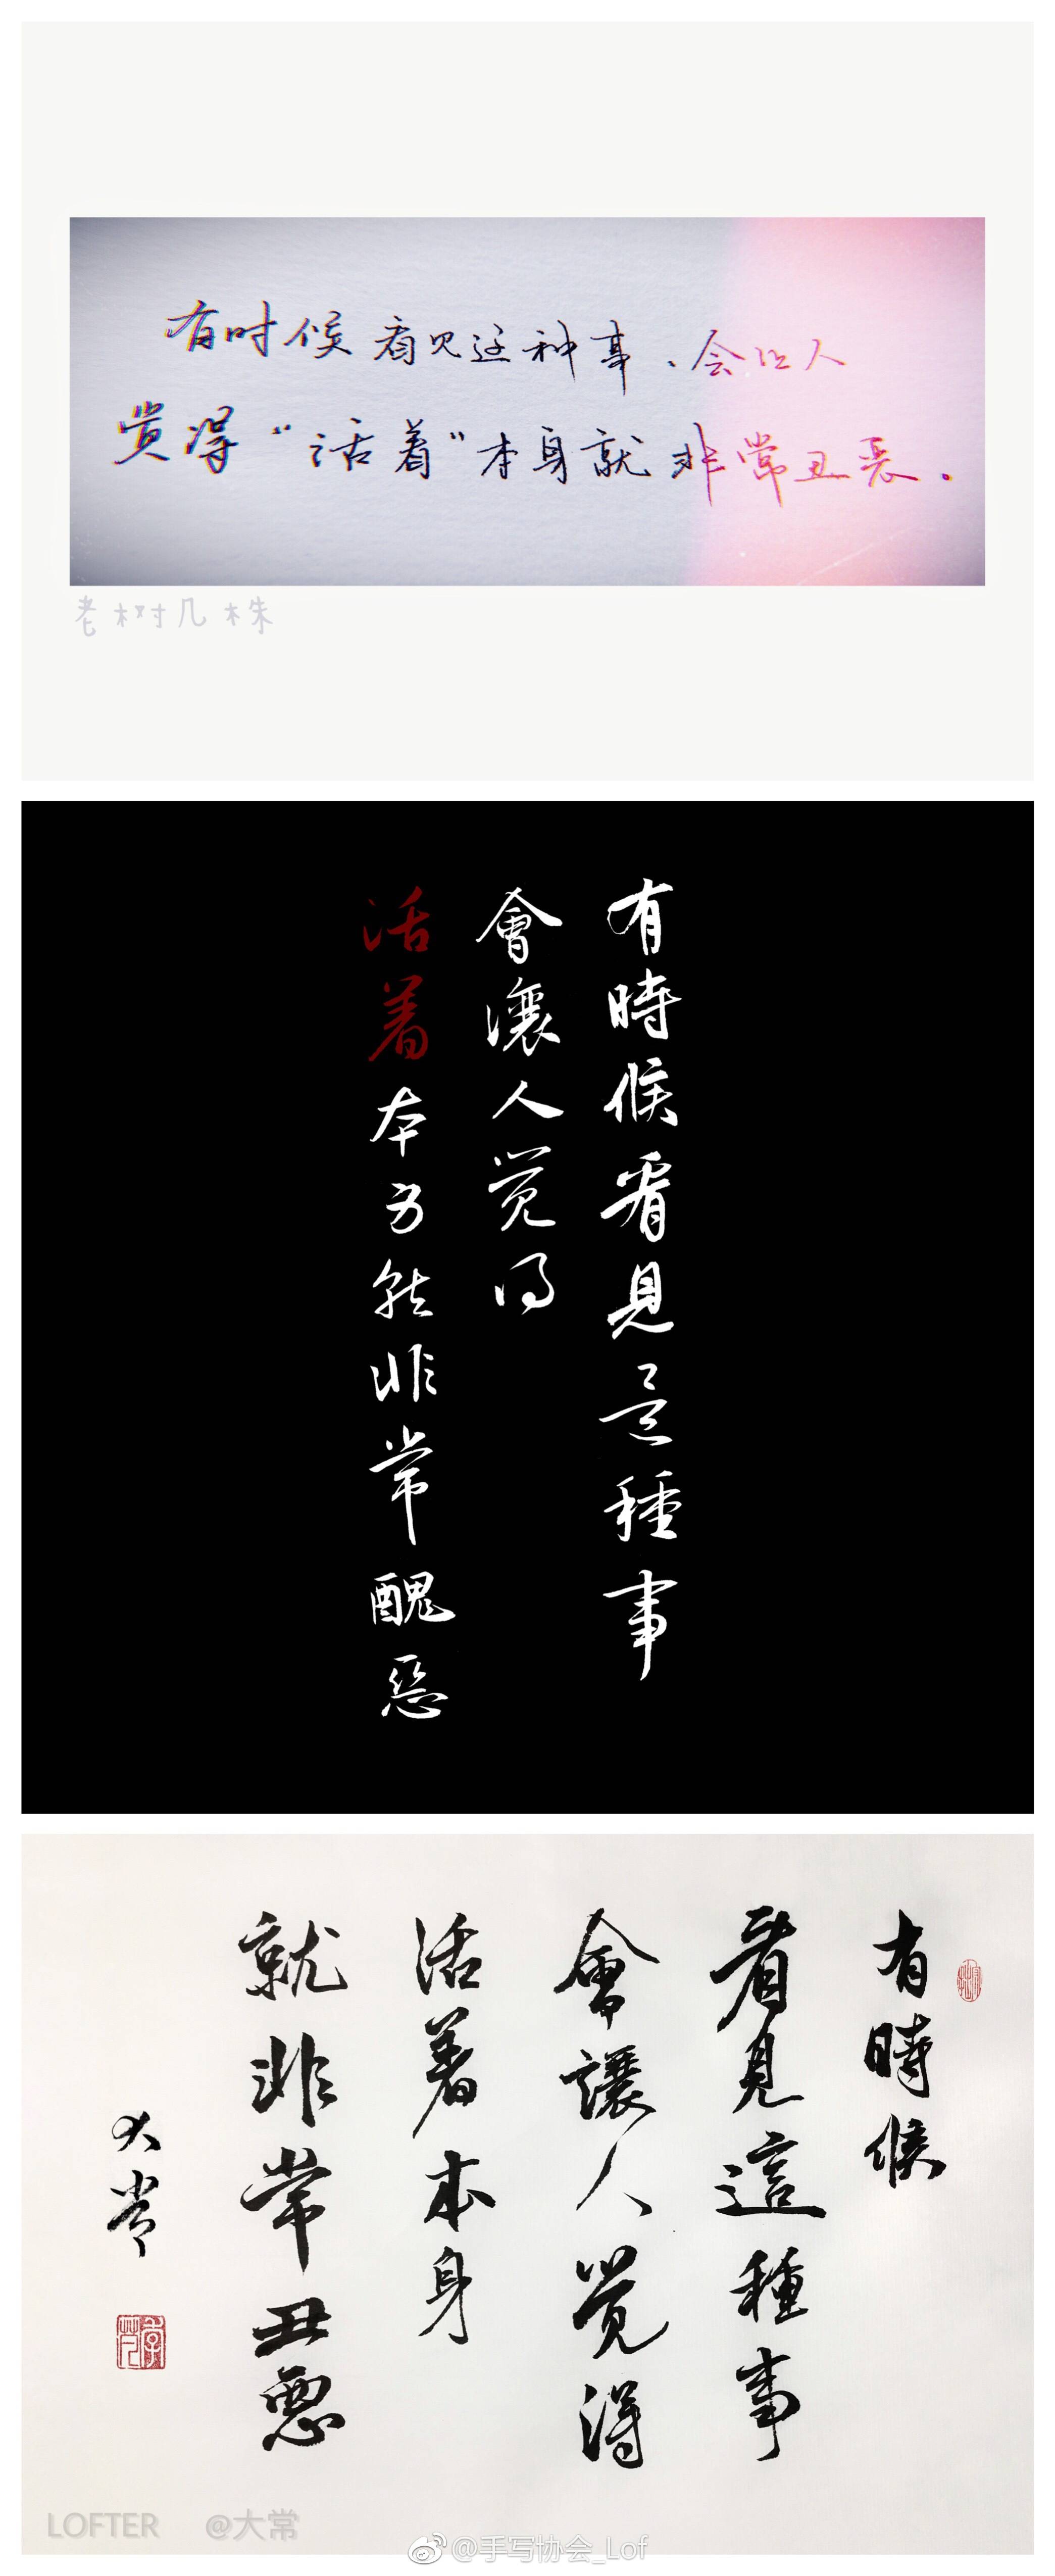 有时候看见这种事、会让人
觉得“活着”本身就非常丑恶。
老树几株
有時候看見這種事
會讓人觉得
活着本身就非常醜惡
有時候
看見這種事
會讓人覺得
活着本身
就非常丑惡
大常
LOFTER @大常
@手写协会_Lof